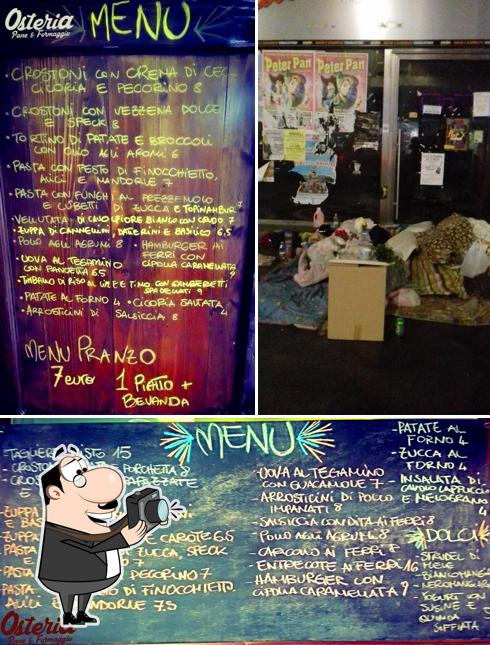 Osteria
Pane e Formaggio
MENU
• CROSTONI CON CREMA DI CECI
CICORIA E PECORINO 8
• CROSTONI CON VEZZENA DOLCE
E SPECK 8
• TORTINO DI PATATE E BROCCOLI
CON OLIO AGLI AROMI 6
• PASTA CON PESTO DI FINOCCHIETTO,
ALICI E MANDORLE 7
• PASTA CON FUNGHI AL PREZZEMOLO
E CUBETTI DI ZUCCA E TOPINAMBUR 7
• VELLUTATA DI CAVOLFIORE BIANCO CON CRUDO 7
• ZUPPA DI CANNELLINI, DATERINI E BASILICO 6,5
• POLLO AGLI AGRUMI 8 • HAMBURGER AI
FERRI CON
CIPOLLA CARAMELLATA 9
• UOVA AL TEGAMINO
CON PANCETTA 6.5
• TIMBALLO DI RISO AL
CON GAMBERETTI
9
• PATATE AL FORNO 4 • CICORIA SALTATA 4
• ARROSTICINI DI SALSICCIA 8
MENU PRANZO
7 euro 1 PIATTO +
BEVANDA
Peter Pan Peter Pan
MENU
TAGLIERE MISTO 15
- CROSTON E PORCHETTA 8
- CROS
E
ZUPPA
E BAS
ZUPPA E CAROTE 6.5
PASTA ZUCCA, SPECK
E 7
PASTA PECORINO 7
PASTA DI FINOCCHIETTO,
ALICI E MANDORLE 7.5
- UOVA AL TEGAMINO
CON GUACAMOLE 7
- ARROSTICINI DI POLLO
IMPANATI 8
- SALSICCIA CON DITA AI FERRI 8
- POLLO AGLI AGRUMI 8
- CAPOCOLLO AI FERRI 8
- ENTRECOTE AI FERRI 16
- HAMBURGER CON
CIPOLLA CARAMELLATA 9
- PATATE AL
FORNO 4
- ZUCCA AL
FORNO 4
- INSALATA DI
CAVOLO CAPPUCCIO
E MELOGRANO
4
DOLCI
- STRUDEL DI
MELE
- BIANCOMANGIARE
NEROMANGIARE
- YOGURT CON
SUSINE E
QUINOA
SOFFIATA
Osteria
Pane e Formaggio